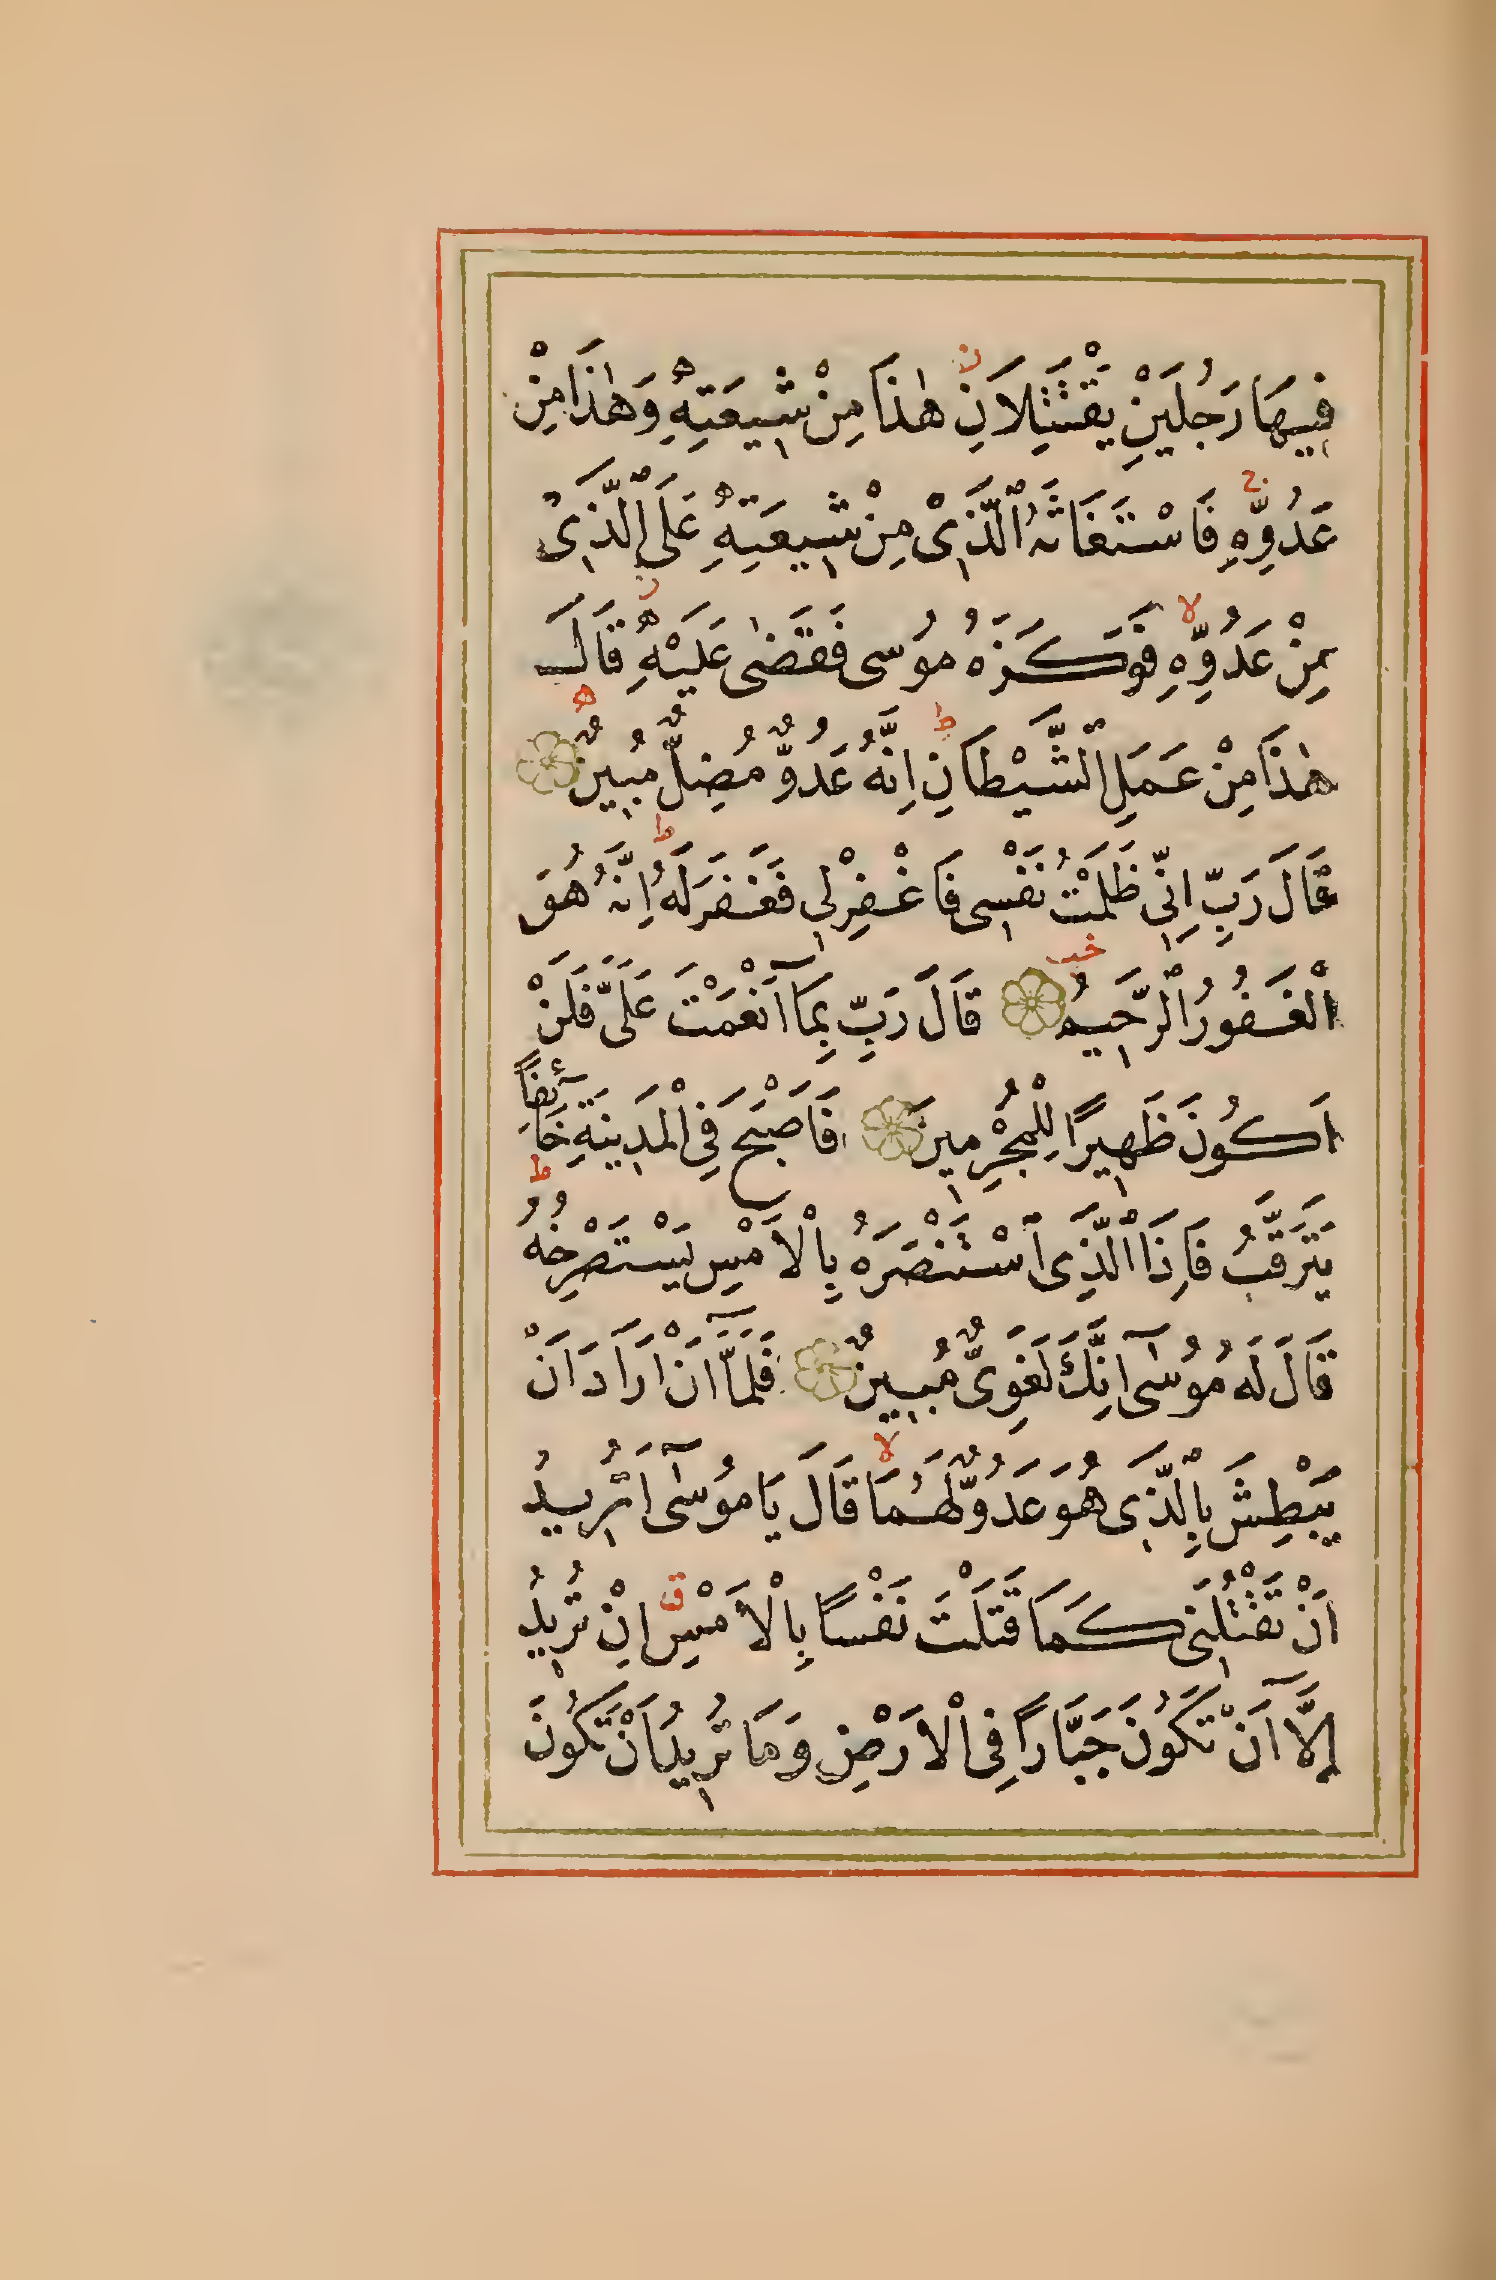 فِيهَا رَجُلَيْنِ يَقْتَتِلَانِ هٰذَا مِنْ شِيعَتِهٖ وَهٰذَا مِنْ
عَدُوِّهٖ فَاسْتَغَاثَهُ الَّذِي مِنْ شِيعَتِهٖ عَلَى الَّذِي
مِنْ عَدُوِّهٖ فَوَكَزَهُ مُوسٰى فَقَضٰى عَلَيْهِ قَالَ
هٰذَا مِنْ عَمَلِ الشَّيْطَانِ اِنَّهُ عَدُوٌّ مُضِلٌّ مُبِينٌ
قَالَ رَبِّ اِنِّي ظَلَمْتُ نَفْسِي فَاغْفِرْلِي فَغَفَرَلَهُ اِنَّهُ هُوَ
الْغَفُورُ الرَّحِيمُ قَالَ رَبِّ بِمَآ اَنْعَمْتَ عَلَىَّ فَلَنْ
اَكُونَ ظَهِيرًا لِلْمُجْرِمِينَ فَاَصْبَحَ فِي الْمَدِينَةِ خَآئِفًا
يَتَرَقَّبُ فَاِذَا الَّذِي اسْتَنْصَرَهُ بِالْاَمْسِ يَسْتَصْرِخُهُ
قَالَ لَهُ مُوسٰٓى اِنَّكَ لَغَوِىٌّ مُبِينٌ فَلَمَّآ اَنْ اَرَادَ اَنْ
يَبْطِشَ بِالَّذِي هُوَ عَدُوٌّ لَهُمَا قَالَ يَا مُوسٰٓى اَتُرِيدُ
اَنْ تَقْتُلَنِي كَمَا قَتَلْتَ نَفْسًا بِالْاَمْسِ اِنْ تُرِيدُ
اِلَّآ اَنْ تَكُونَ جَبَّارًا فِي الْاَرْضِ وَمَا تُرِيدُ اَنْ تَكُونَ